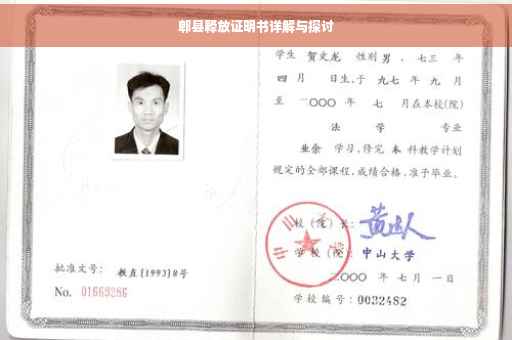 郫县释放证明书详解与探讨
学生 贺文龙 性别 男 、七三 年
四 月 日生,于 九七 年 九 月
至 二〇〇〇 年 七 月在本校(院)
法 学 专业
业余 学习,修完 本 科教学计划
规定的全部课程,成绩合格,准予毕业。
校(院)长:
学校(院): 中山大学
二〇〇〇 年 七 月 一 日
批准文号: 教直[1993]8号
No. 01669286
学校编号:0032482